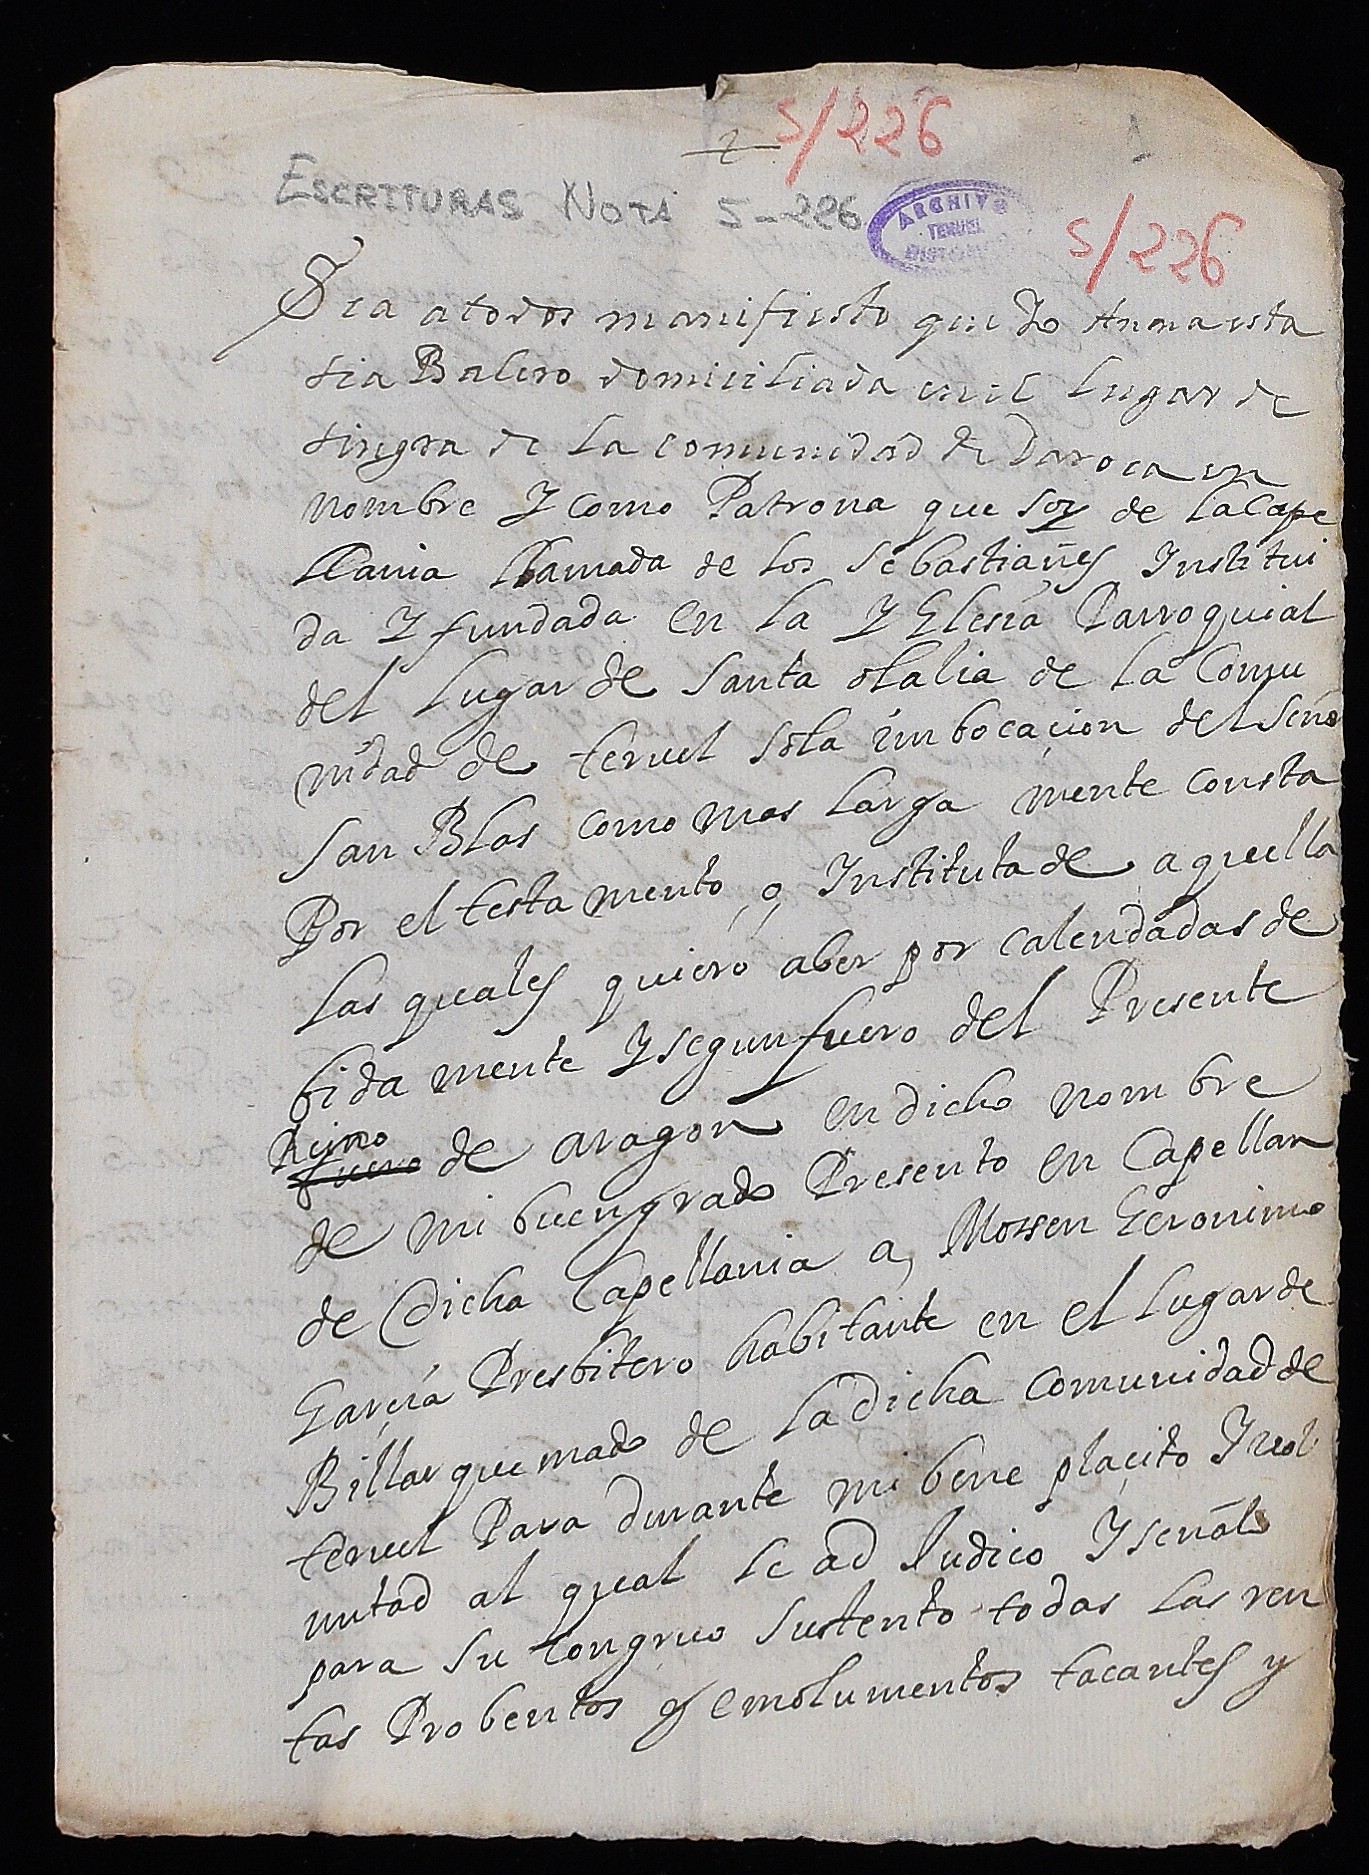 S/226
2
1
ESCRITURAS NOTA S-226
ARCHIVO
TERUEL
HISTORICO
S/226
Sea a todos manifiesto que Yo Annasta
sia Balero domiciliada en el Lugar de
singra de La comunidad de Daroca en
nombre Y como Patrona que soy de La Cape
llania llamada de los sebastianes Institui
da Y fundada en La YGlesia Parroquial
del Lugar de Santa olalia de La Comu
nidad de teruel sota imbocacion del Señor
San Blas como mas larga mente consta
Por el testamento o Instituta de aquella
Las quales quiero aber por calendadas de
bida mente Y segun fuero del Presente
Reino
fuero de aragon en dicho nombre
de mi buen grado Presento en Capellan
de dicha Capellania a Mossen Geronimo
Garcia Presbitero habitante en el Lugar de
Billar quemado de La dicha Comunidad de
teruel Para durante mi bene placito Y uol
untad al qual le ad Judico Y señalo
para su Congruo sustento todas Las ren
tas Probentos y emolumentos tocantes y